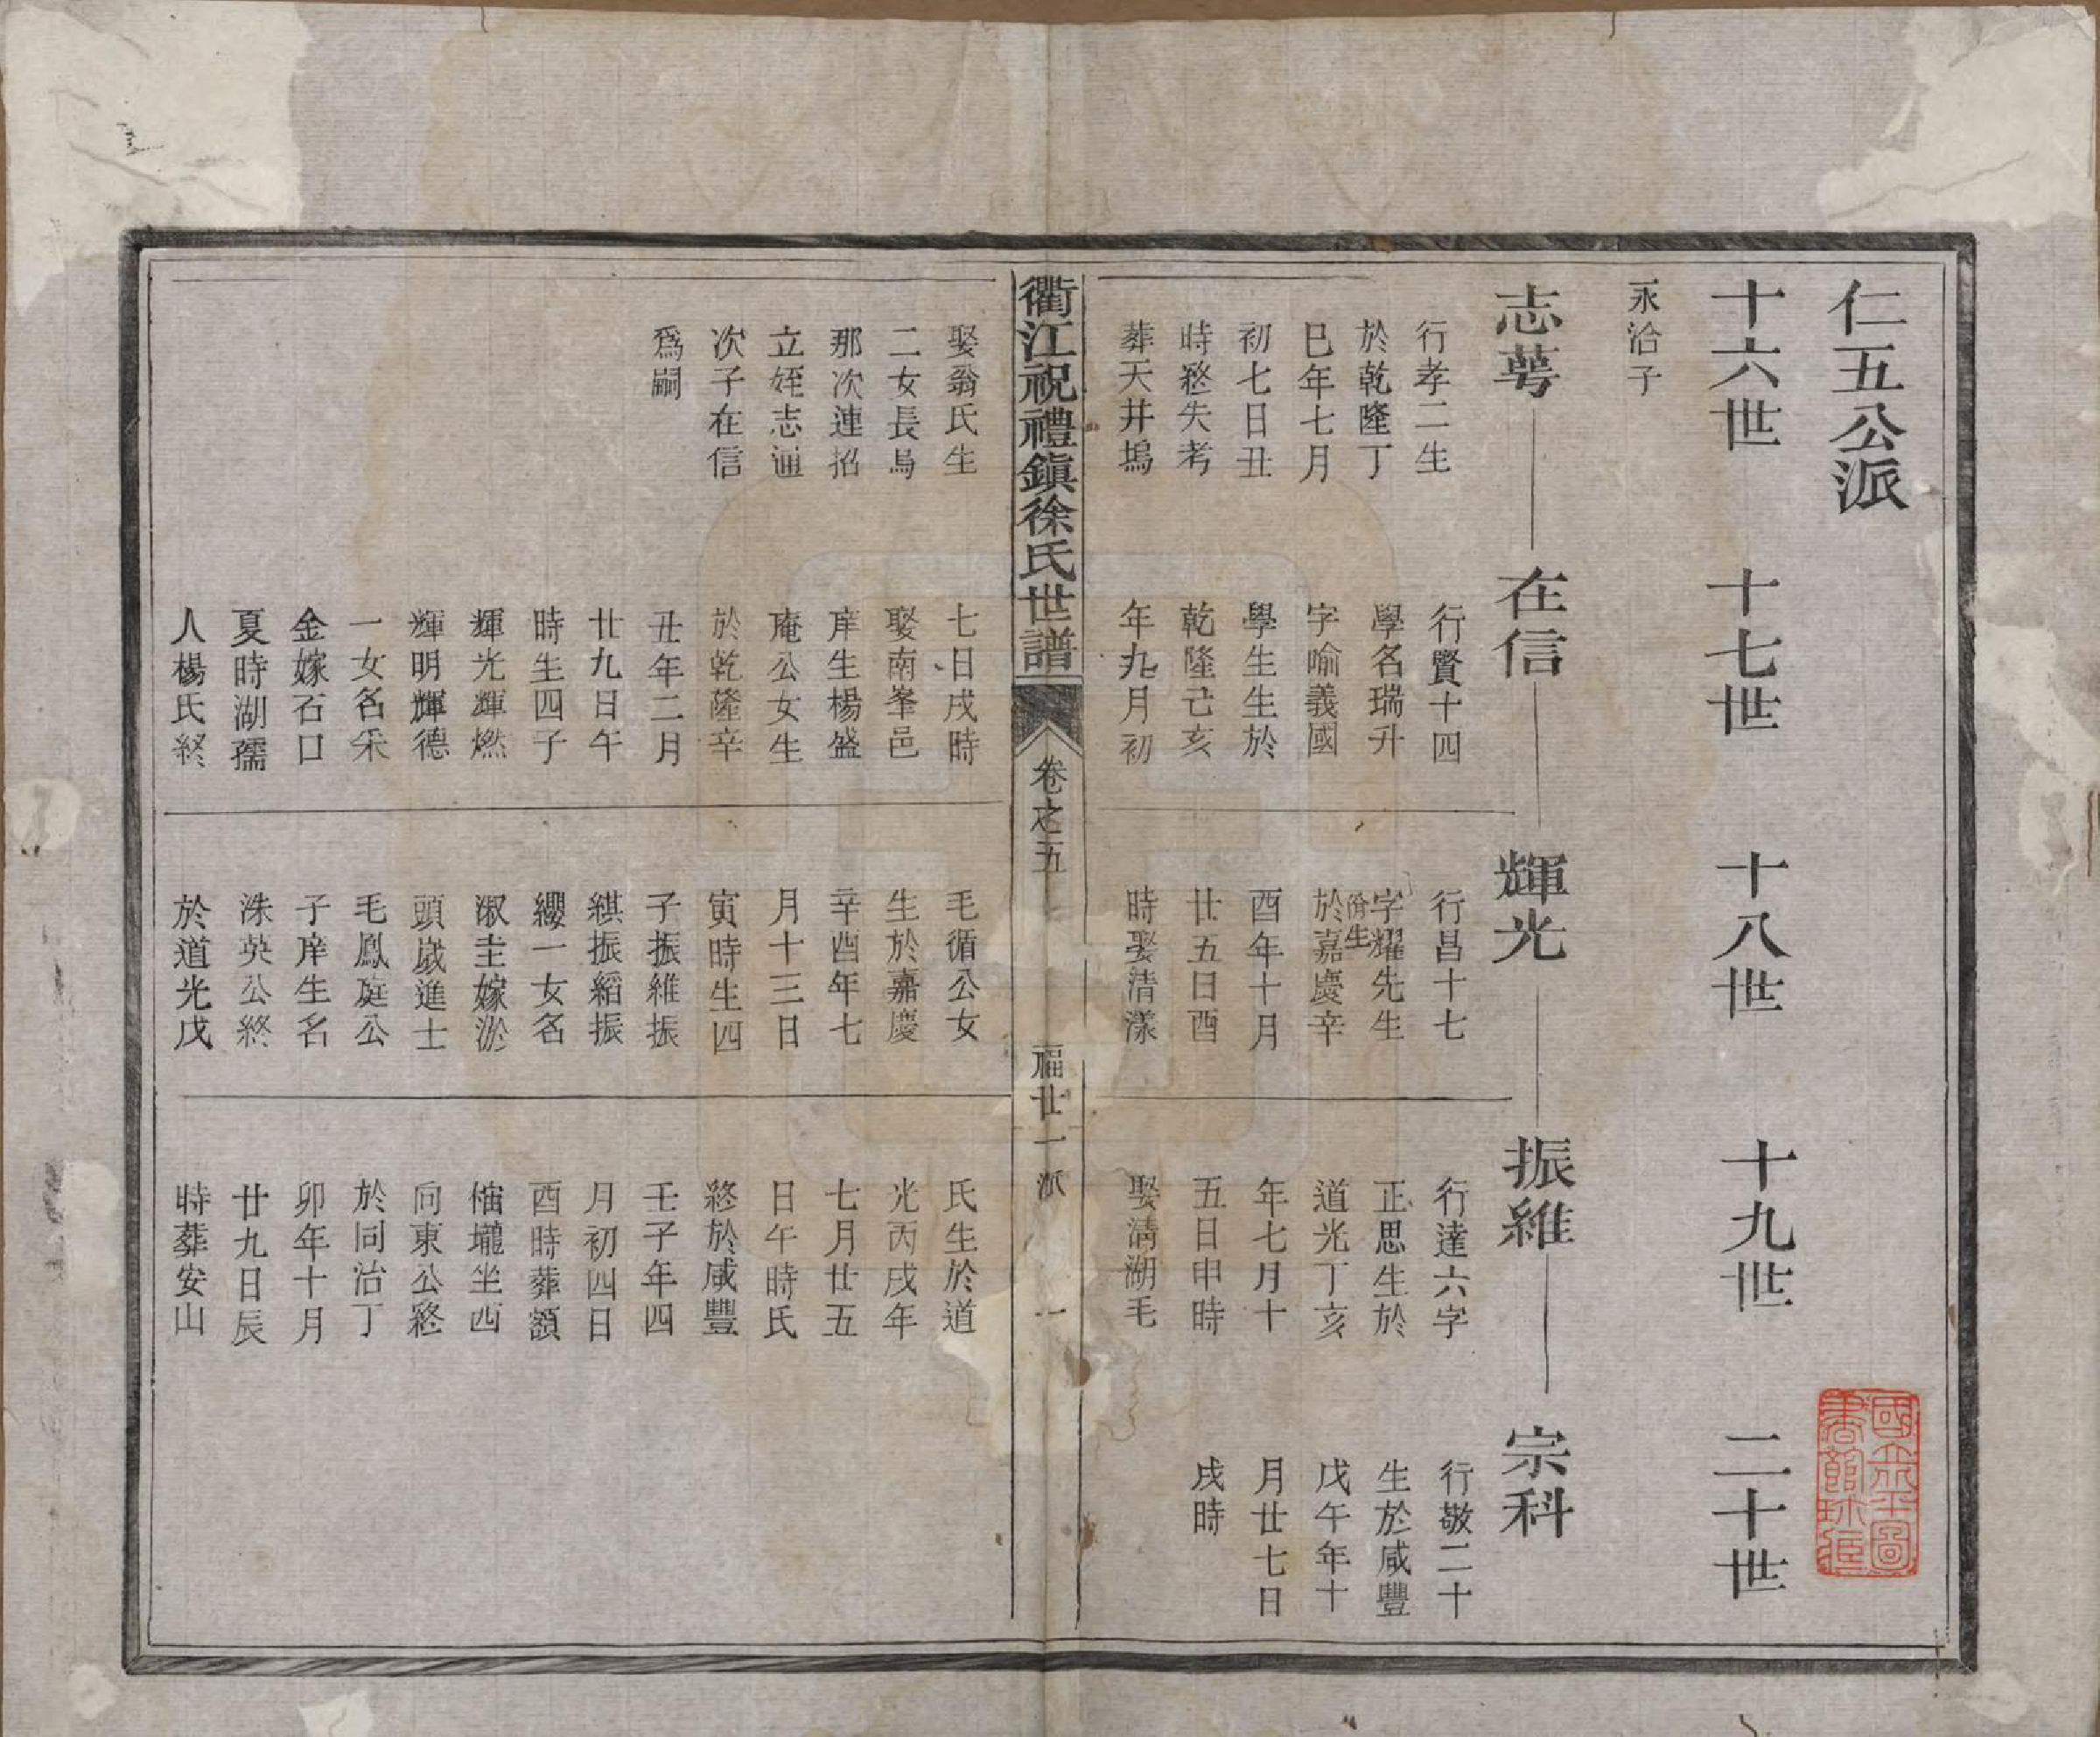 仁五公派
十六世
十七世
十八世
十九世
二十世
永洽子
志萼
行孝二生
於乾隆丁
巳年七月
初七日丑
時終失考
葬天井塢
娶翁氏生
二女長烏
那次連招
立姪志通
次子在信
為嗣
在信
行賢十四
學名瑞升
字喻義國
學生生於
乾隆己亥
年九月初
七日戌時
娶南峯邑
庠生楊盛
庵公女生
於乾隆辛
丑年二月
廿九日午
時生四子
輝光輝燃
輝明輝德
一女名采
金嫁石口
夏時湖孺
人楊氏終
輝光
行昌十七
字耀先生
佾生
於嘉慶辛
酉年十月
廿五日酉
時娶清漾
毛循公女
生於嘉慶
辛酉年七
月十三日
寅時生四
子振維振
綨振縚振
纓一女名
淑圭嫁淤
頭歲進士
毛鳳庭公
子庠生名
洙英公終
於道光戊
振維
行達六字
正思生於
道光丁亥
年七月十
五日申時
娶清湖毛
氏生於道
光丙戌年
七月廿五
日午時氏
終於咸豐
壬子年四
月初四日
酉時葬額
塧壠坐西
向東公終
於同治丁
卯年十月
廿九日辰
時葬安山
宗科
行敬二十
生於咸豐
戊午年十
月廿七日
戌時
衢江祝禮鎮徐氏世譜
卷之五
福廿一派
一
國立北平圖書館珍藏